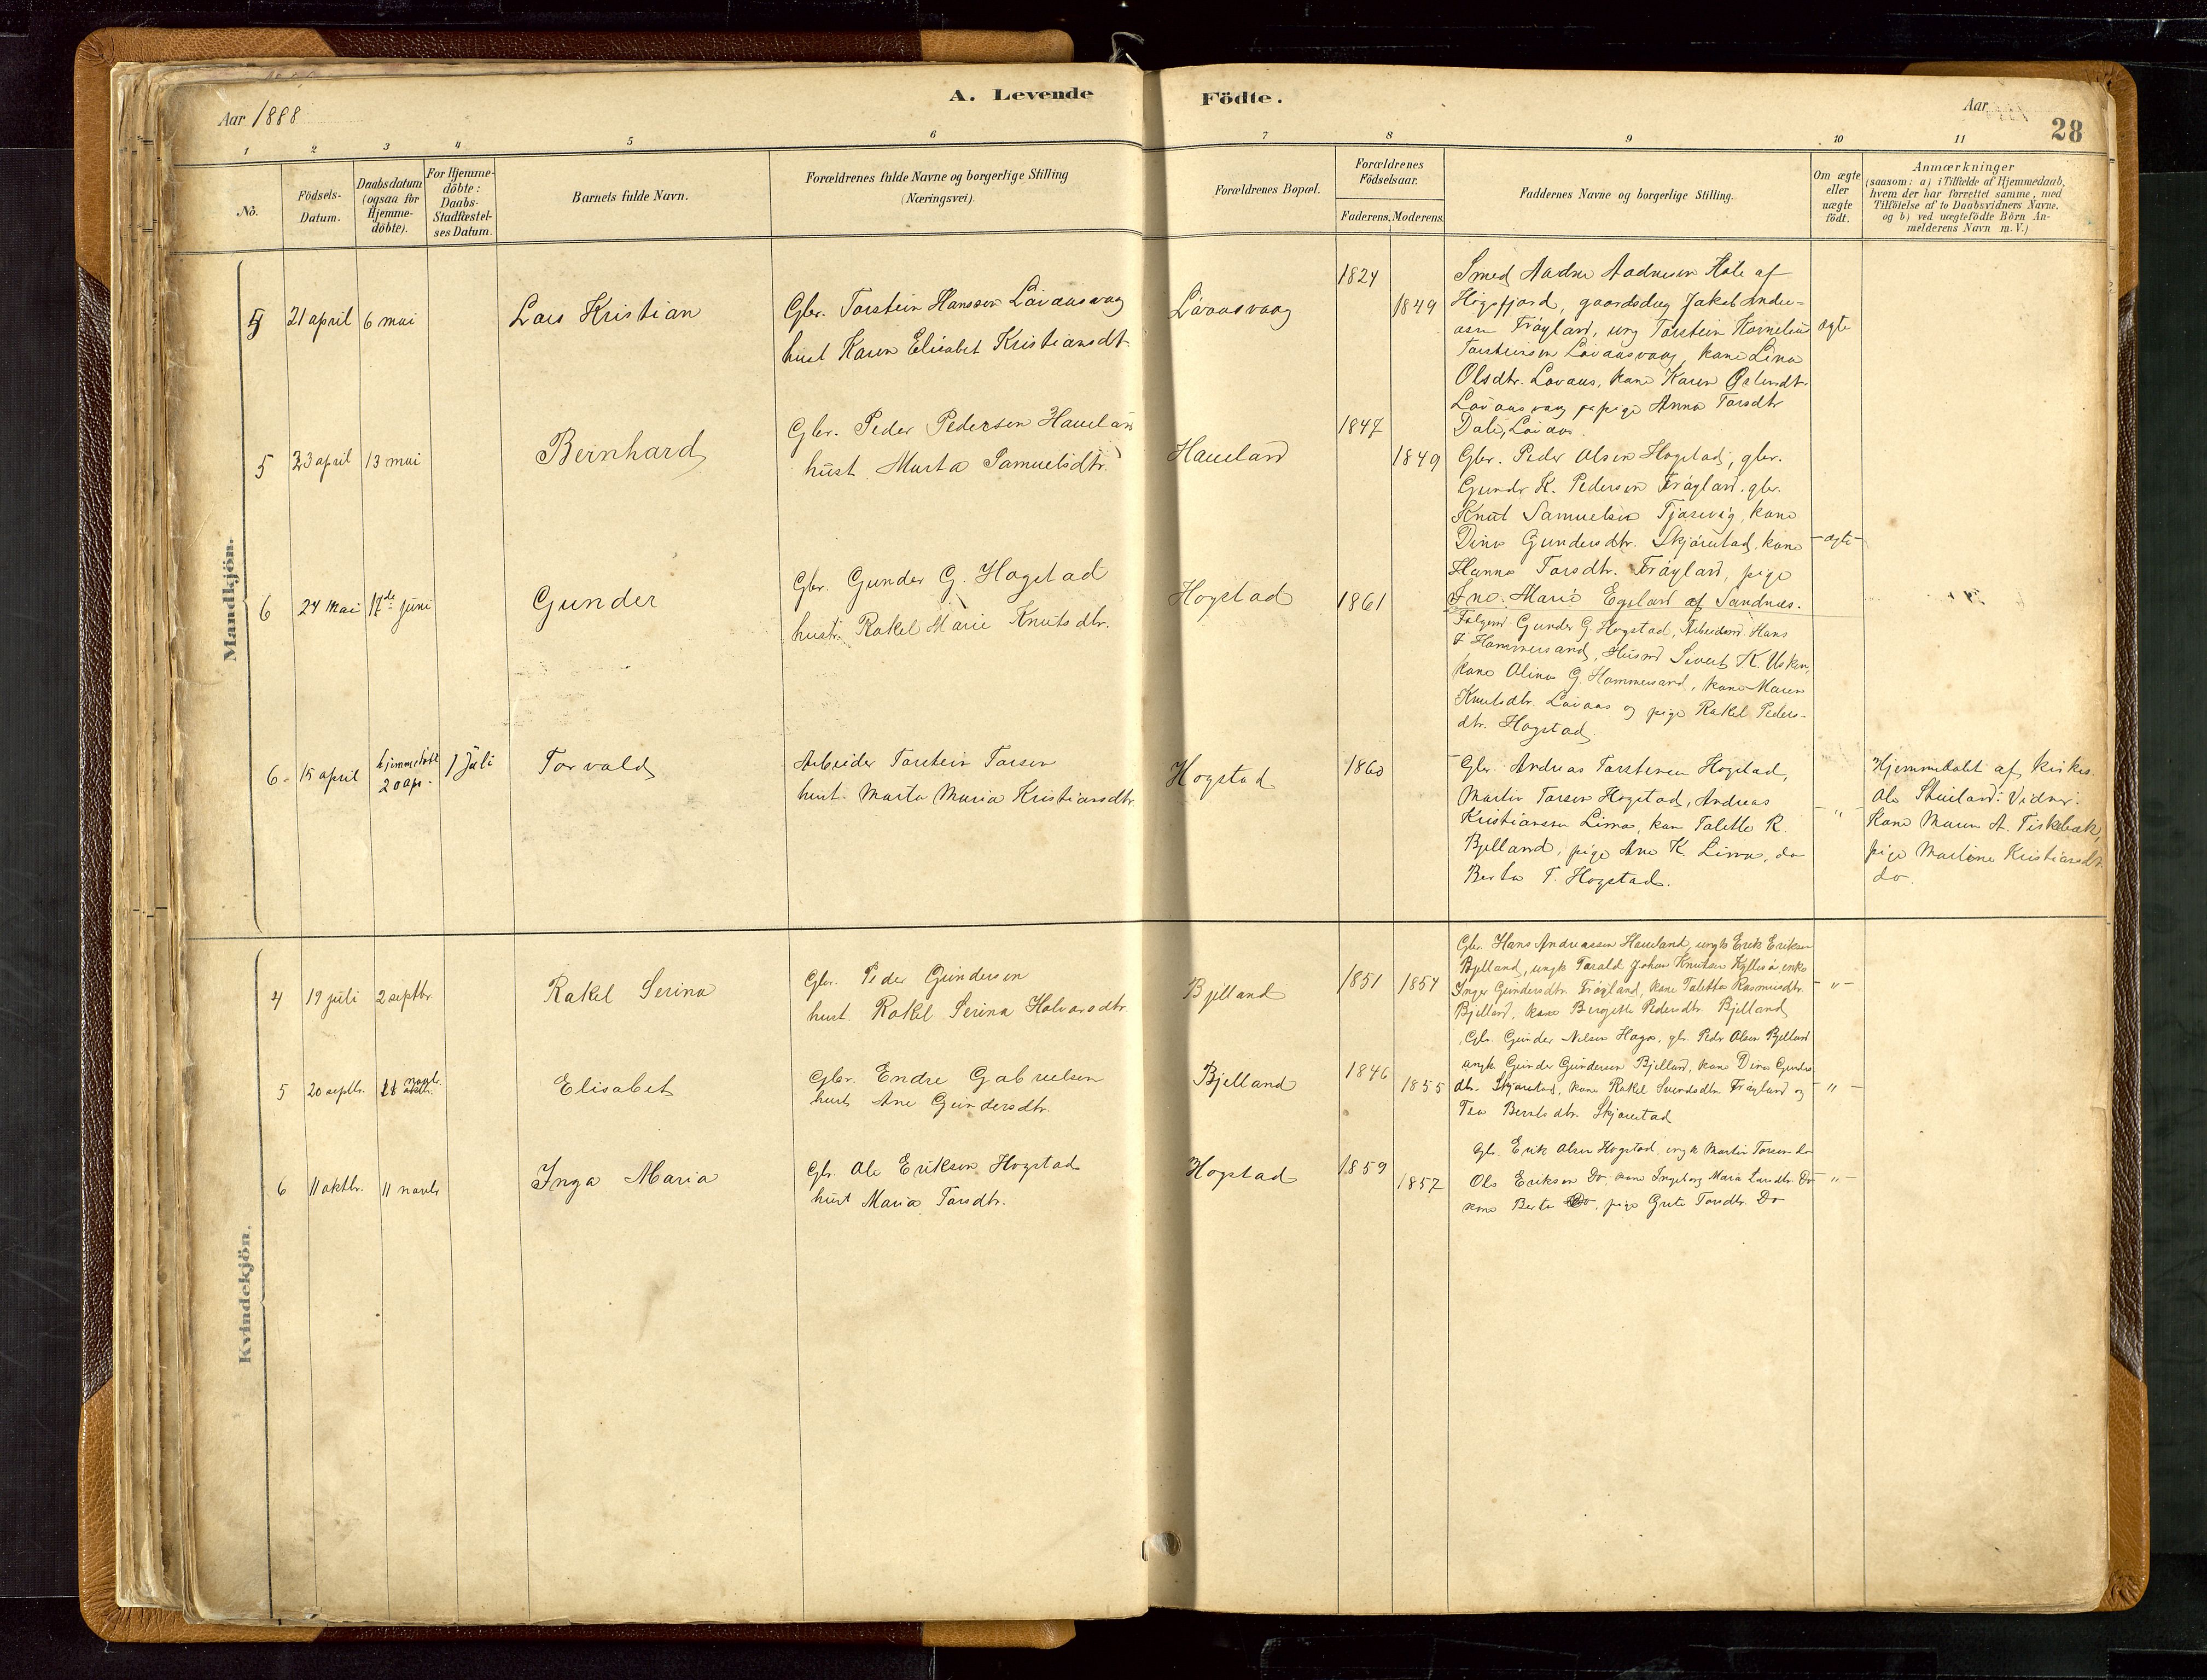 A. Levende Födte.
Aar 1888
Aar
28
1 2 3 4 5 6 7 8 9 10 11
No.
Födsels-
Datum.
Daabsdatum
(ogsaa for
Hjemme-
döbte).
For Hjemme-
döbte:
Daabs-
Stadfæstel-
ses Datum.
Barnets fulde Navn.
Forældrenes fulde Navne og borgerlige Stilling
(Næringsvei).
Forældrenes Bopæl.
Forældrenes
Födselsaar.
Faderens, Moderens,
Faddernes Navne og borgerlige Stilling.
Om ægte
eller
uægte
födt.
Anmærkninger
(saasom: a) i Tilfælde af Hjemmedaab,
hvem der har forrettet samme, med
Tilföielse af to Daabsvidners Navne.
og b) ved uægtefödte Börn An-
melderens Navn m. V.)
Mandkjön.
21 april 6 mai
Lars Kristian
Gbr. Torstein Hansson Løvaasvaag
hust Karen Elisabet Kristiansdt.
Løvaasvaag
1824
1849
Smed Aadne Aadnesen Hole af
Høgsfjord, gaardsdrg Jakob Andre-
asen Frøyland, ung Torstein Kornelius
Torsteinsen Løvaasvaag, kone Lina
Olsdtr. Lovaas, kone Karen
Løvaasvaag pige Anna Torsdtr
Dale, Løvaas.
ægte
5
23 april 13 mai
Bernhard
Gbr. Peder Pedersen Haueland
hust. Marta Samuelsdtr.
Haueland
1847
1849
Gbr. Peder Olsen Hogstad, gbr.
Gunder K. Pedersen Frøyland. gbr.
Knut Samuelsen Tjøsevig, kone
Dina Gundersdtr. Skjørestad, kone
Hanna Torsdtr. Frøyland, pige
Marie Egeland af Sandnæs.
- ægte -
6
24 Mai 17de juni
Gunder
Gbr. Gunder G. Hogstad
hustr. Rakel Marie Knutsdtr.
Hogstad
1861
Gunder G. Hogstad, Arbeidsmd. Hans
T Hammersand, Husmd Sivert K. Usken,
kone Olina G. Hammersand, kone Maren
Knutsdtr. Løvaas og pige Rakel Peders-
dtr. Hogstad.
6.
15 april
hjemmedøbt
20 apr.
1 juli
Torvald
Arbeider Torstein Torsen
hust. Marta Maria Kristiansdtr.
Hogstad
1860
Gbr. Andreas Torstensen Hogstad,
Martin Torsen Hogstad, Andreas
Kristiansen Lima, kone Talette R.
Bjelland, pige Ane K. Lima, do
Berta T. Hogstad.
- " -
Hjemmedøbt af kirkes.
Ole Vidner:
kone Maren A. Fiskebæk,
pige Martine Kristiansdt.
do.
Kvindekjön.
4
19 juli 2 septbr.
Rakel Serina
Gbr. Peder Gundersen
hust. Rakel Serina Halvorsdtr.
Bjelland
1851 1854
Gbr. Hans Andreassen Haueland, ungk Erik Eriksen
Bjelland, ungk Torald Johan Knutsen Kyllesø, enke
Inger Gundersdtr. Frøyland, kone Talette Rasmusdtr.
Bjelland, kone Bergitte Pedersdtr. Bjelland
- " -
5
20 septbr. 11 novbr.
Elisabet
Gbr. Endre Gabrielsen
hust Ane Gundersdtr.
Bjelland
1846
1855
Gbr. Gunder Nilsen Haga, gbr. Peder Olsen Bjelland
ungk. Gunder Gundersen Bjelland, kone Dina Gunders
dtr. Skjørestad, kone Rakel Svendsdtr Frøyland og
Tea Berntsdtr. Skjørestad
- " -
6
11 oktbr. 11 novbr
Inga Maria
Gbr. Ole Eriksen Hogstad
hust Maria Torsdtr.
Hogstad
1859
1857
Gbr. Erik Olsen Hogstad, ungk Martin Torsen do
Ole Eriksen Do, kone Ingeborg Maria Larsdtr. Do
kone Berta Do, pige Grete Torsdtr. Do
- " -